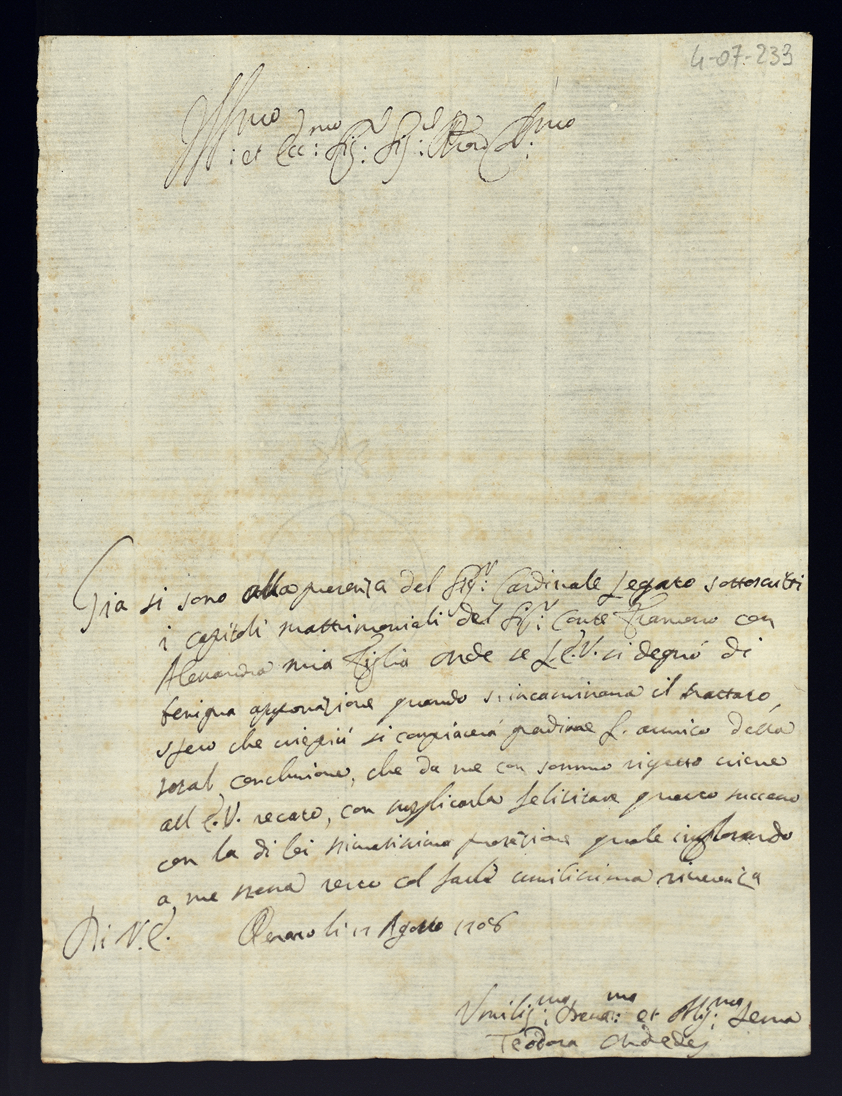 4-07-233
Ill.mo et Ecc.mo Sig.r Sig.r Pron Col.mo
Gia si sono alla presenza del Sig.r Cardinale Legato sottoscritti
i capitoli mattrimoniali del Sig.r Conte Francesco con
Alessandra mia Figlia onde se L'E.V. si degnò di
benigna approvazione quando s'incaminava il trattato,
spero che si compiacerà gradirne l'aviso della
total conclusione, che da me con sommo rispetto viene
all'E.V. recato, con supplicarla felicitare questo successo
con la di lei stimatissima protezione quale implorando
a me stessa resto col farle umilissima riverenza
Di V.E. Pesaro li 11 Agosto 1706
Umiliss.ma Deua.ma et Oblig.ma Serua
Teodora Ondedei